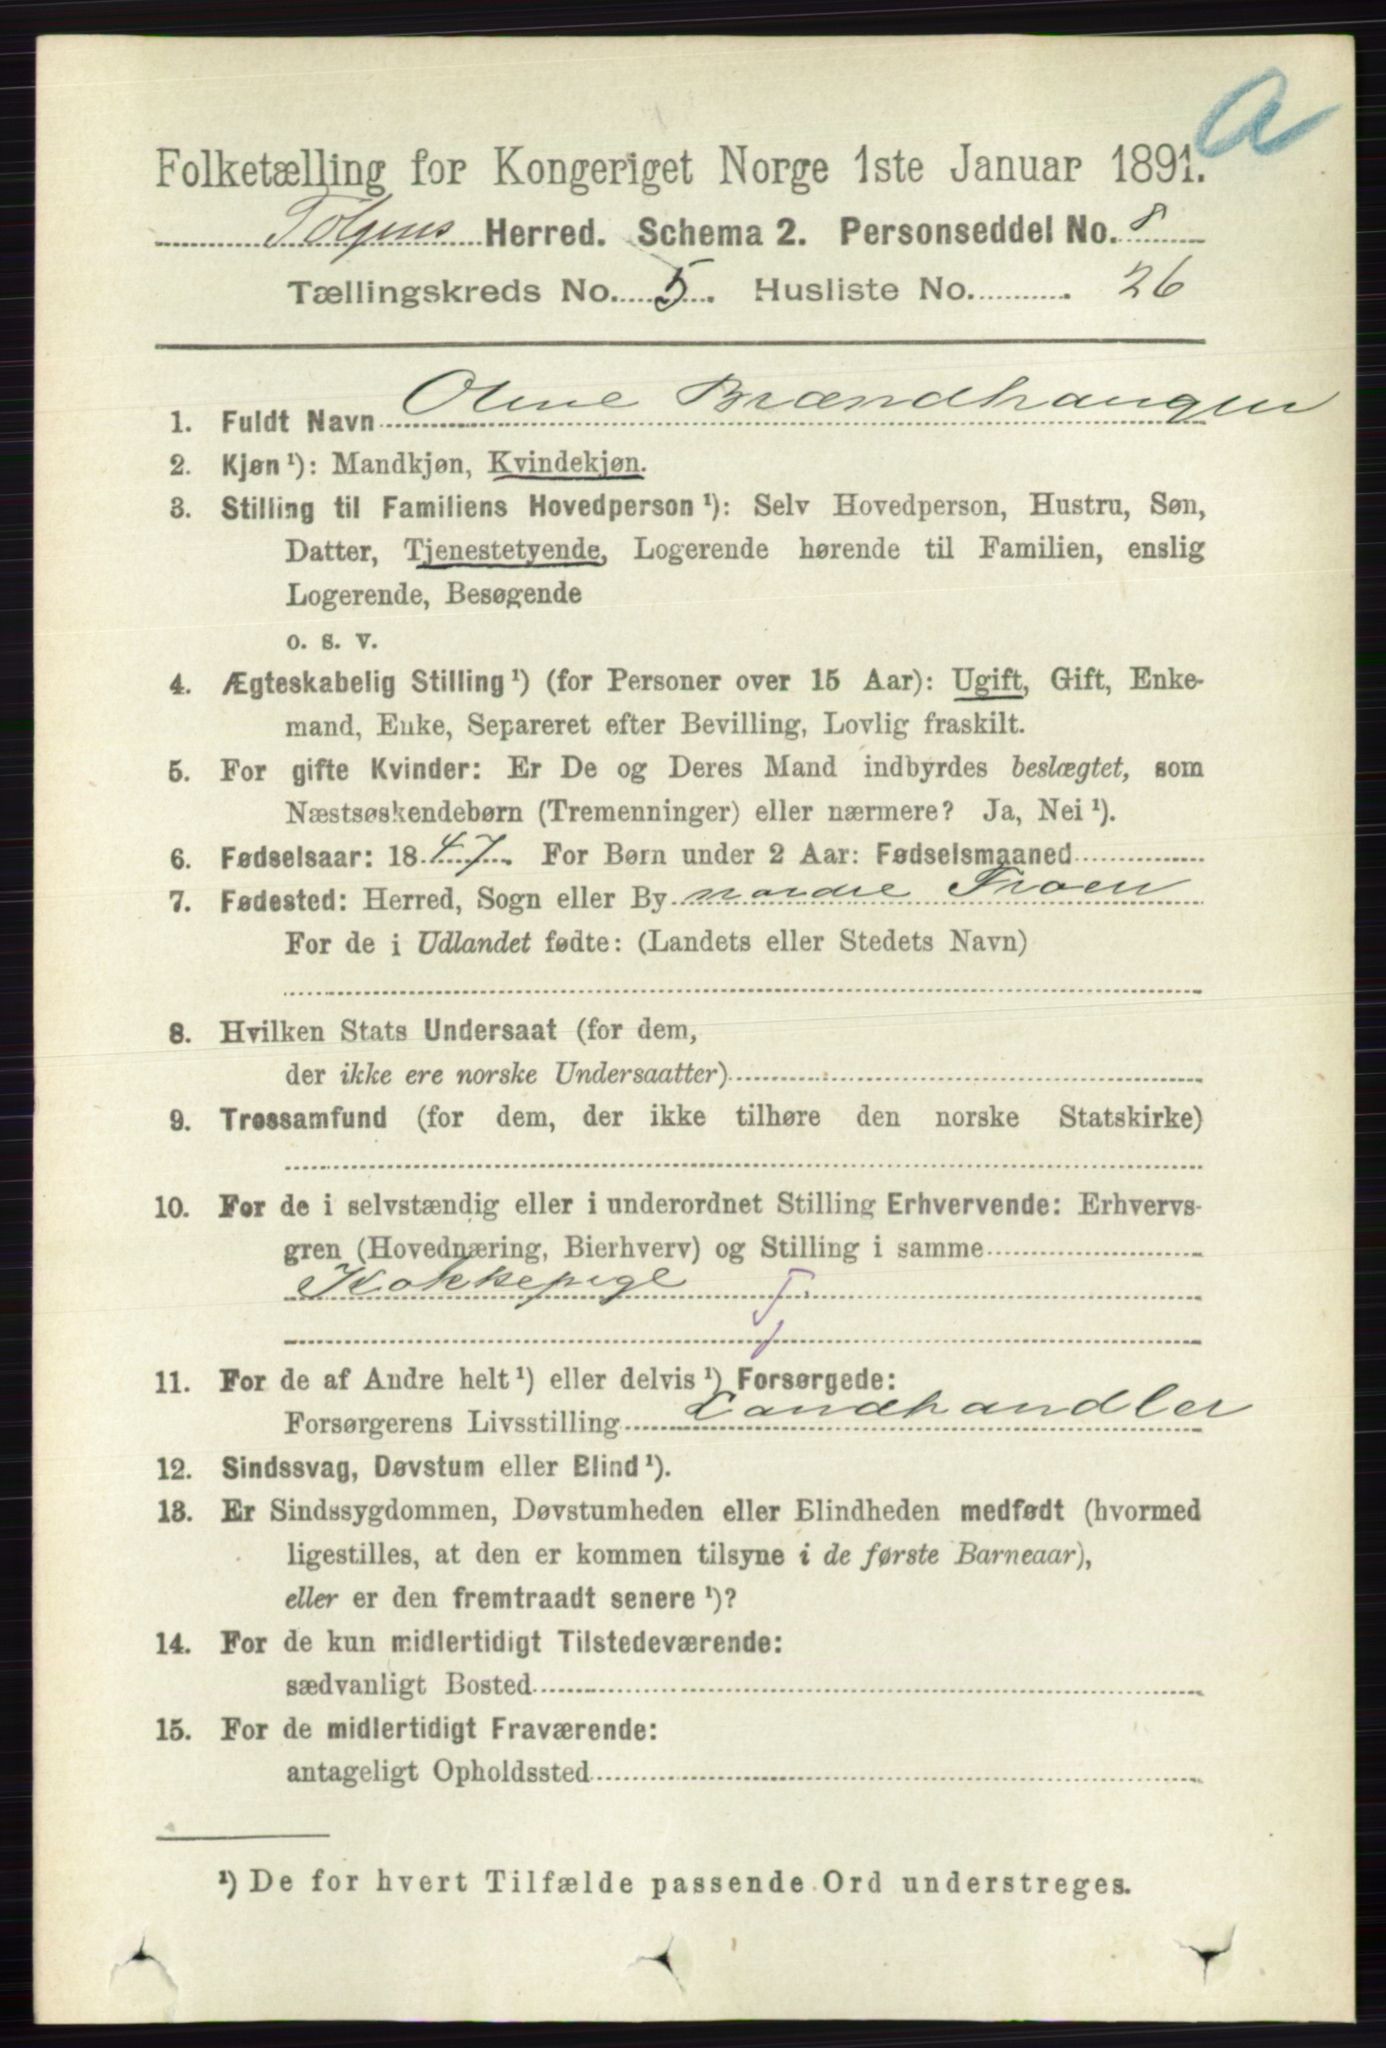 a
Folketælling for Kongeriget Norge 1ste Januar 1891.
Tolgens Herred. Schema 2. Personseddel No. 8
Tællingskreds No. 5. Husliste No. 26
1. Fuldt Navn Oline Brændhaugen
2. Kjøn ¹): Mandkjøn, Kvindekjøn.
3. Stilling til Familiens Hovedperson ¹): Selv Hovedperson, Hustru, Søn,
Datter, Tjenestetyende, Logerende hørende til Familien, enslig
Logerende, Besøgende
o. s. v.
4. Ægteskabelig Stilling ¹) (for Personer over 15 Aar): Ugift, Gift, Enke-
mand, Enke, Separeret efter Bevilling, Lovlig fraskilt.
5. For gifte Kvinder: Er De og Deres Mand indbyrdes beslægtet, som
Næstsøskendebørn (Tremenninger) eller nærmere? Ja, Nei ¹).
6. Fødselsaar: 1847. For Børn under 2 Aar: Fødselsmaaned
7. Fødested: Herred, Sogn eller By nordre Froen
For de i Udlandet fødte: (Landets eller Stedets Navn)
8. Hvilken Stats Undersaat (for dem,
der ikke ere norske Undersaatter)
9. Trossamfund (for dem, der ikke tilhøre den norske Statskirke)
10. For de i selvstændig eller i underordnet Stilling Erhvervende: Erhvervs-
gren (Hovednæring, Bierhverv) og Stilling i samme
Kokkepige
11. For de af Andre helt ¹) eller delvis ¹) Forsørgede:
Forsørgerens Livsstilling Landhandler
12. Sindssvag, Døvstum eller Blind ¹).
13. Er Sindssygdommen, Døvstumheden eller Blindheden medfødt (hvormed
ligestilles, at den er kommen tilsyne i de første Barneaar),
eller er den fremtraadt senere ¹)?
14. For de kun midlertidigt Tilstedeværende:
sædvanligt Bosted
15. For de midlertidigt Fraværende:
antageligt Opholdssted
¹) De for hvert Tilfælde passende Ord understreges.